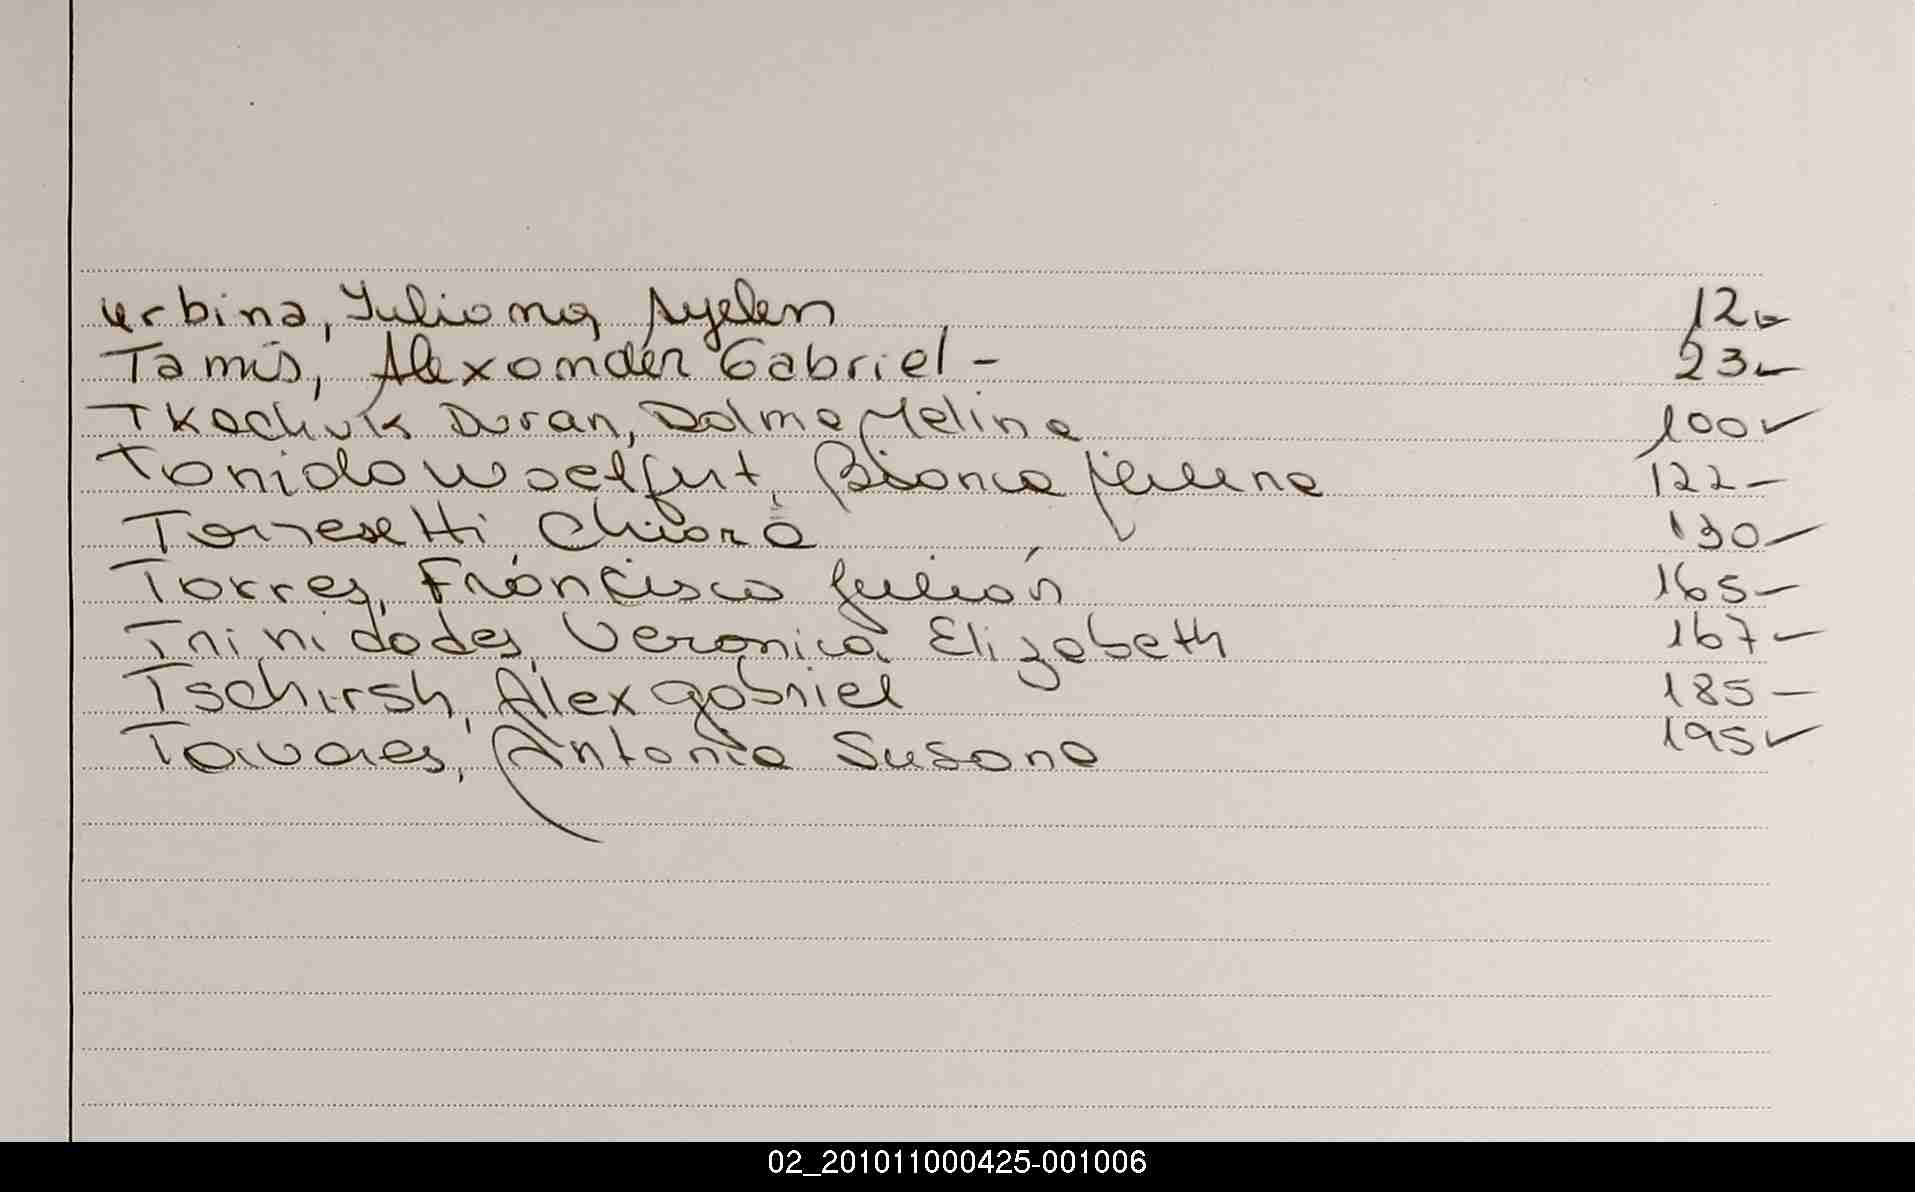 Urbina, Yuliana Ayelen 12
Tamis, Alexander Gabriel - 23
Tkachuk Duran, Dalma Melina 100
Bianca 122
Torresetti Chiara 130
Torres, Francisco Julián 165
Trinidades, Veronica Elizabeth 167
Tschirsh, Alex gabriel 185
Tavares, Antonia Susana 195
02_201011000425-001006